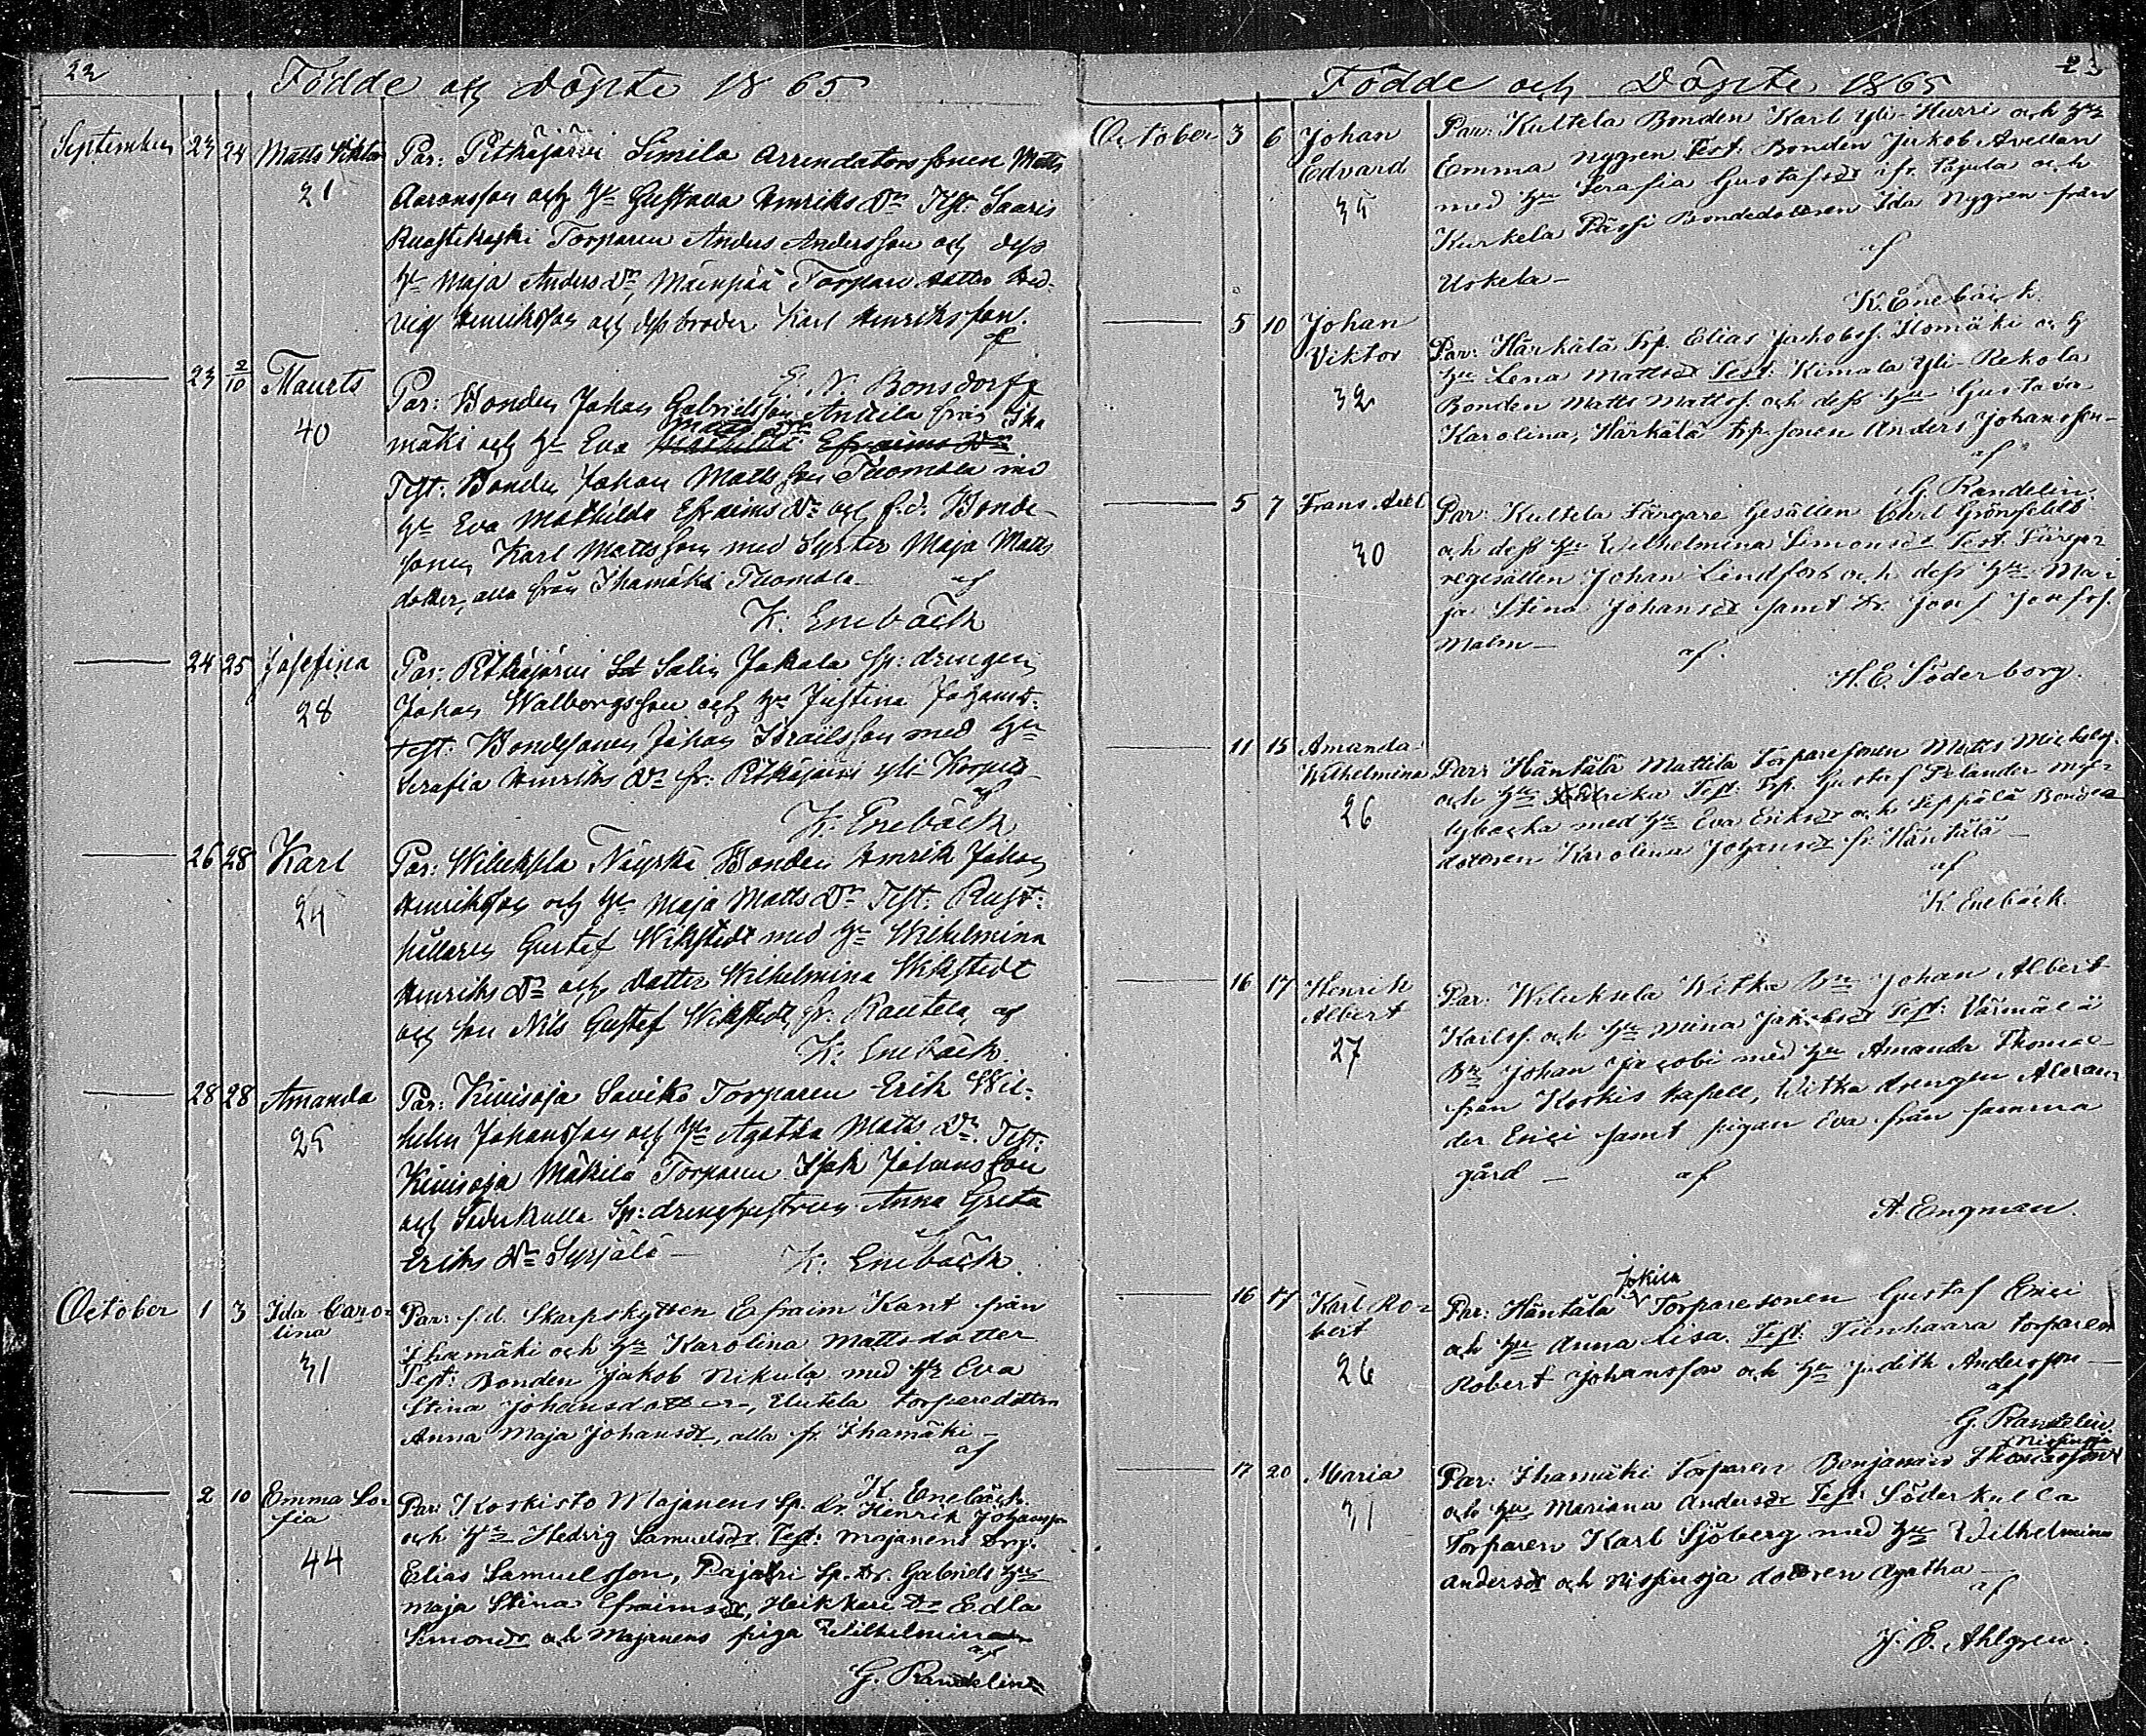 22
Födde och Döpte 1865
September 23 24 Matts Viktor
21
Par: Pitkäjärvi Simila Arrendators sonen Matts
Aaronsson och Hu Gustava Henriks Dr Test: Saaris
Torparen Anders Andersson och dess
Hu Maja Anders Dr, Mäenpää Torpare dotter Hed-
vig Henriksson och dess broder Karl Henriksson.
af
E. N. Bonsdorff
23 2/10 Maurits
40
Par: Bonden Johan Gabrielsson Anttila från Iha
mäki och Hu Eva Matts Dr
Test: Bonden Johan Mattsson Tuomola med
Hu Eva Mathilda Efraims Dr och f.d. Bonde-
sonen Karl Mattsson med Syster Maja Matts
dotter, alla från Ihamäki Tuomola
af
K. Enebäck
24 25 Josefina
28
Par: Pitkäjärvi Salin Jakala sp: drengen
Johan Walborgsson och Hu Justina Johansd:
Test: Bondesonen Johan Israelsson med Hu
Serafia Henriks Dr fr: Pitkäjärvi yli-Korpi
af
K. Enebäck
26 28 Karl
24
Par: Wiluksela Näyrkä Bonden Henrik Johan
Henriksson och Hu Maja Matts Dr Test: Rust-
hållaren Gustaf Wikstedt med Hu Wilhelmina
Henriks Dr och dotter Wilhelmina Wikstedt
och son Nils Gustaf Wikstedt fr. Rautela, af
K: Enebäck.
28 28 Amanda
25
Par: Kivisoja Saviko Torparen Erik Wil-
helm Johansson och Hu Agatha Matts Dr. Test:
Kivisoja Mäkilä Torparen Isak Johansson
och Söderkulla Sp: drenghustrun Anna Greta
Eriks Dr Syrjälä
K: Enebäck.
October 1 3 Ida Caro-
lina
31
Par: f.d. Skarpskytten Efraim Kant från
Ihamäki och Hu Karolina Mattsdotter
Test: Bonden Jakob Nikula med Hu Eva
Stina Johansdotter, Uutela torparedottern
Anna Maja Johansdr, alla fr. Ihamäki
af
K Enebäck.
2 10 Emma So-
fia
44
Par: Koskisto Majanens Sp. dr. Henrik Johansson
och Hu Hedvig Samuelsdr. Test: Majanens Drg.
Elias Samuelsson, Pajari Sp. Dr. Gabriels Hu
Maja Stina Efraimsdr, Heikkari Dr Edla
Simonsdr och Majanens piga Wilhelmina
af
G. Randelin
23
Födde och Döpte 1865
October 3 6 Johan
Edvard
35
Par: Kultela Bonden Karl Yli-Hurri och Hu
Emma Nygren Test: Bonden Jakob Avellan
med Hu Serafia Gustafsdr fr. Pajula och
Kurkela Pässi Bondedottren Ida Nygren från
Uskela
af
K. Enebäck.
5 10 Johan
Viktor
32
Par: Härkälä Trp. Elias Jakobss. Ilomäki och
Hu Lena Mattsdr Test: Kimala Yli-Rekola
Bonden Matts Mattss. och dess Hu Gustava
Karolina, Härkälä trp. sonen Anders Johansson
af
G. Randelin.
5 7 Frans Axel
30
Par: Kultela Färgare Gesällen Carl Grönfeldt
och dess Hu Wilhelmina Simonsdr Test: Färga-
regesällen Johan Lindfors och dess Hu Ma-
ja Stina Johansdr samt Dr. Josef Josefss.
Malm
af
H. E. Söderborg.
11 15 Amanda
Wilhelmina
26
Par: Häntälä Mattila Torparesonen Matts Mickelss.
och Hu Test: Trp. Gustaf Telander
med Hu Eva Eriksdr och Seppälä Bonde-
dottren Karolina Johansdr fr. Häntälä
af
K. Enebäck.
16 17 Henrik
Albert
27
Par: Wiluksela Witka Bn Johan Albert
Karlss. och Hu Mina Jakobsdr Test: Värmälä
Bn Johan Jacobi med Hu Amanda Thomae
från Koskis kapell, Witka drengen Alexan-
der Erici samt pigan Eva från samma
gård
af
A. Engman.
16 17 Karl Ro-
bert
26
Par: Häntälä Jokila Torparesonen Gustaf Erici
och Hu Anna Lisa. Test: Tiinhaara torparen
Robert Johansson och Hu Judith Andersson
af
G. Randelin.
17 20 Maria
31
Par: Ihamäki Torparen Benjamin Thomasson
och Hu Mariana Andersdr Test: Söderkulla
Torparen Karl Sjöberg med Hu Wilhelmina
Andersdr och dottren Agatha
af
J. E. Ahlgren.